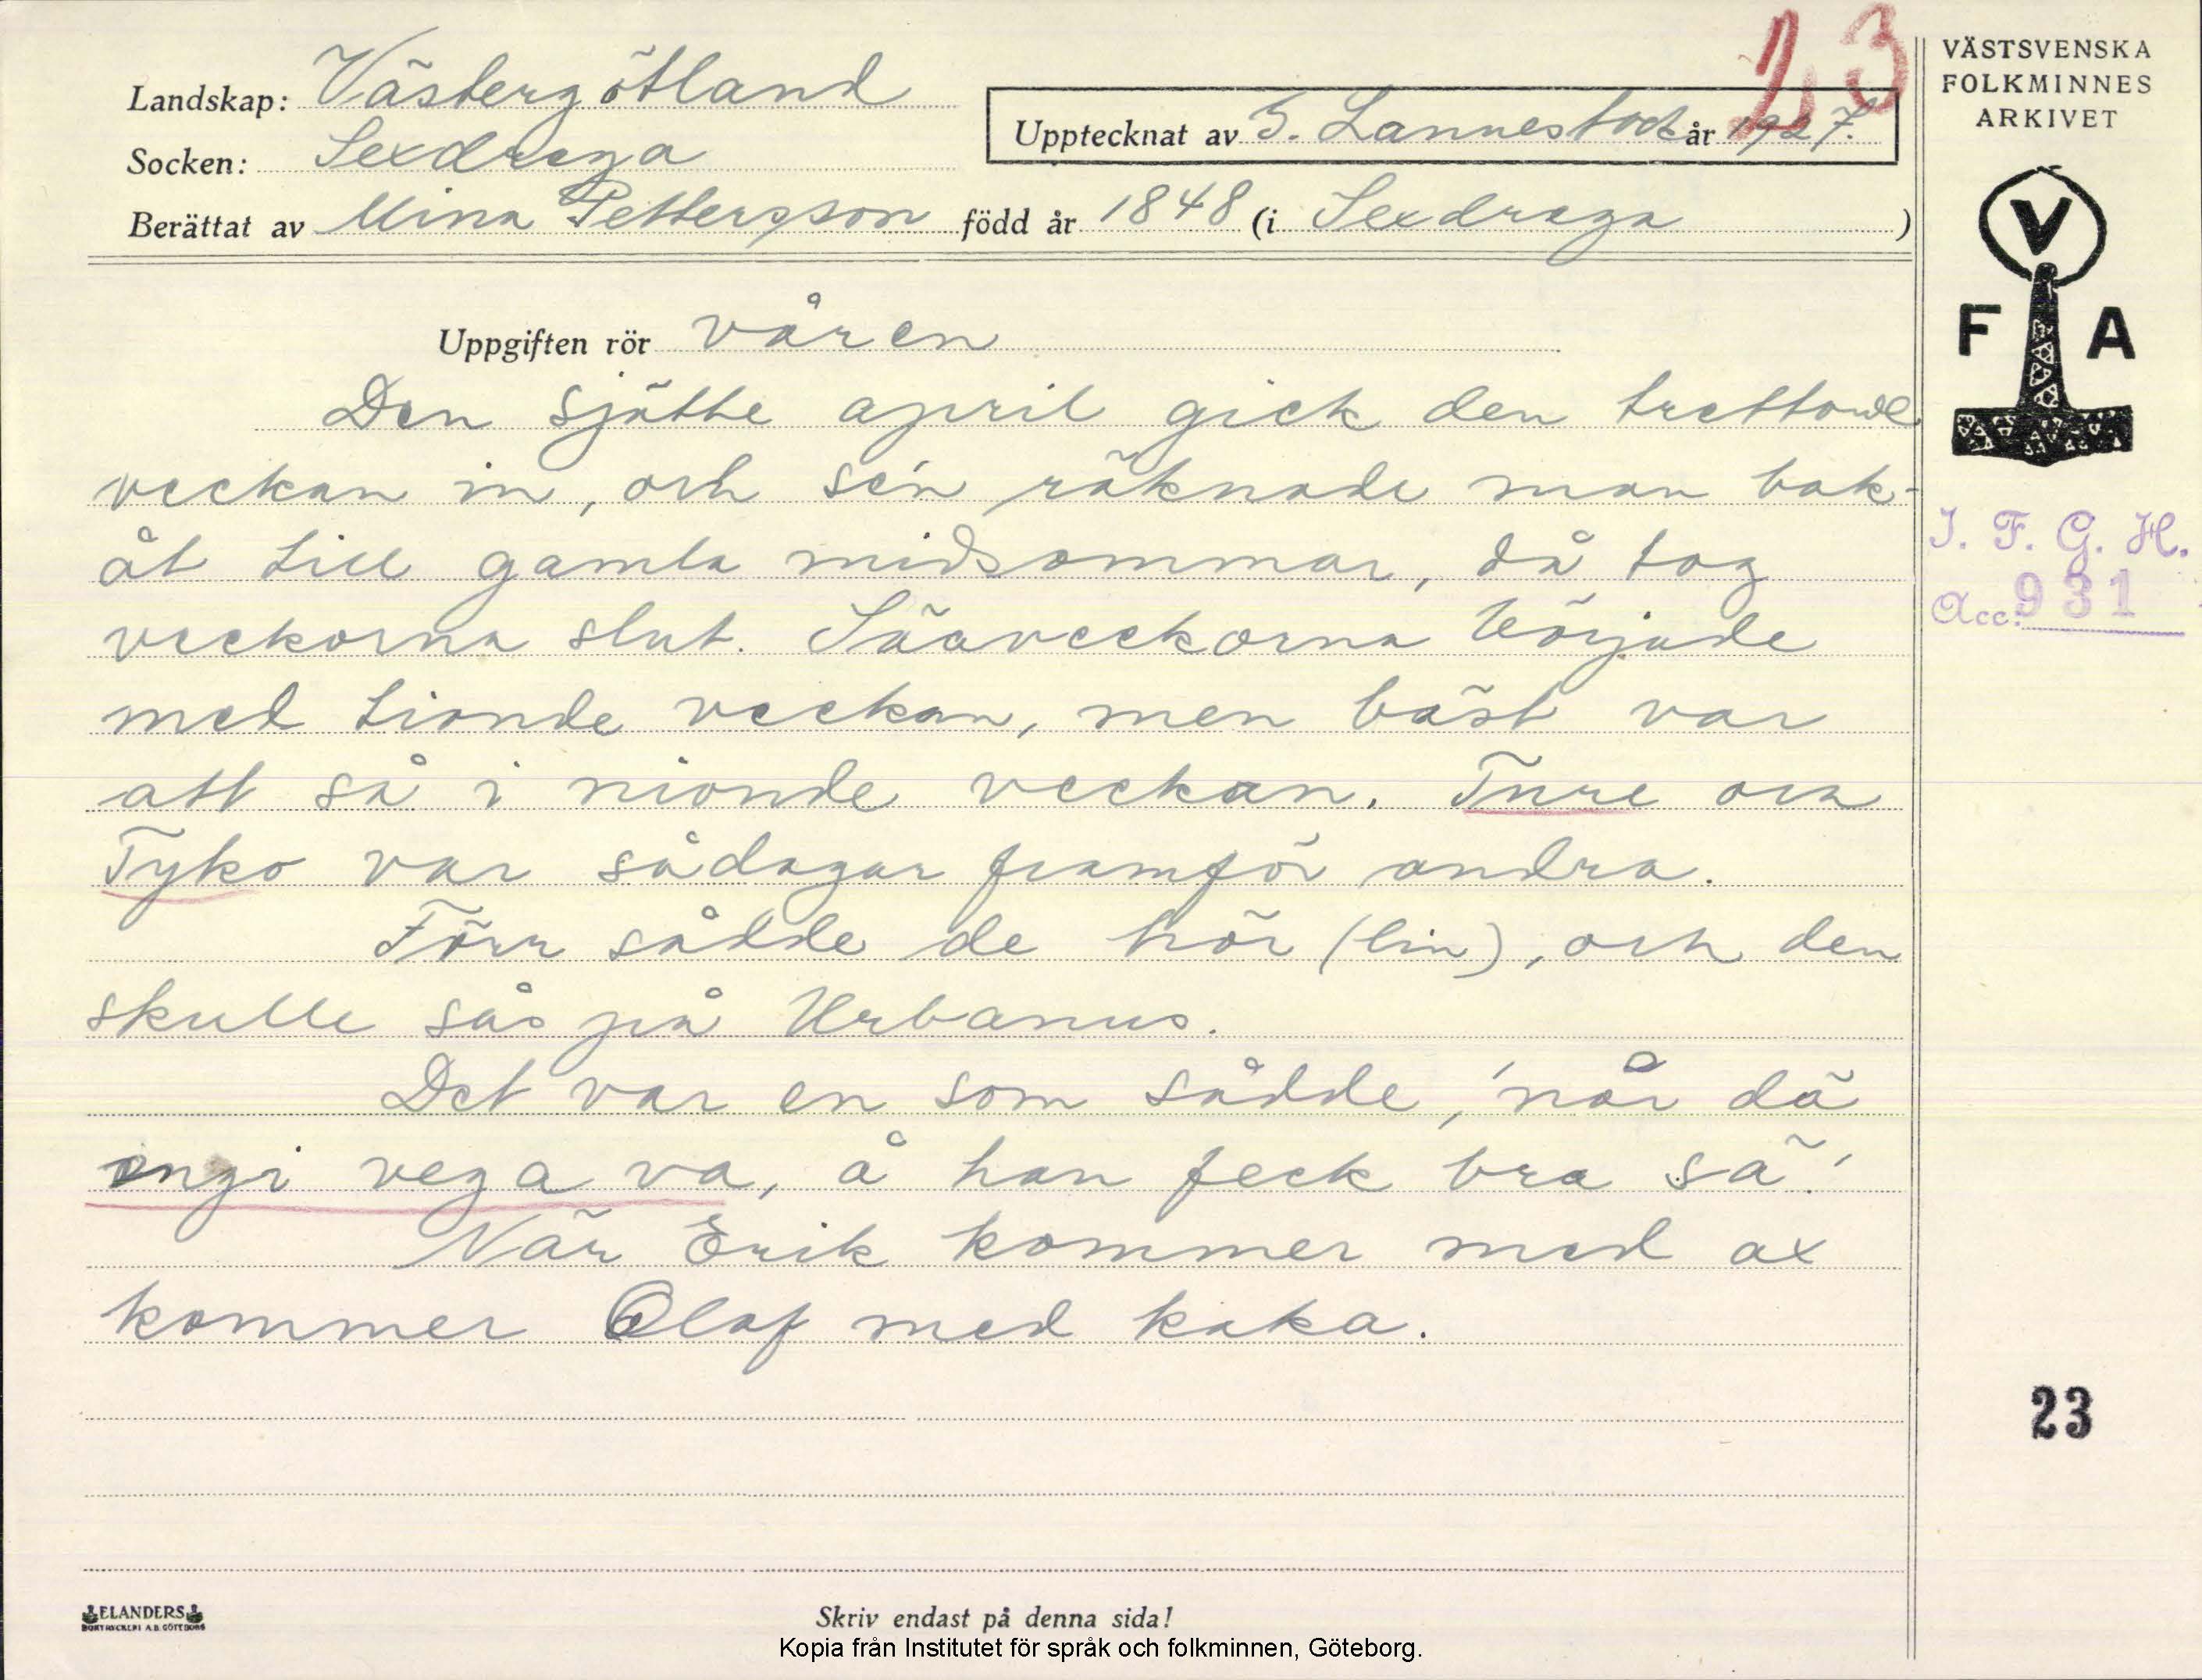 23
Landskap: Västergötland
Socken: Sexdrega
Upptecknat av S. Lannestock år 1927.
Berättat av Mina Pettersson född år 1848 (i Sexdrega )
Uppgiften rör våren
Den sjätte april gick den trettonde
veckan in, och se'n räknade man bak-
åt till gamla midsommar, då tog
veckorna slut. Sååveckorna började
med tionde veckan, men bäst var
att så i nionde veckan. Ture och
Tyko var sådagar framför andra.
Förr sådde de hör (lin), och den
skulle sås på Urbanus.
Det var en som sådde, 'når dä
ingi vega va, å han feck bra sä'.
När Erik kommer med ax
kommer Olof med kaka.
VÄSTSVENSKA
FOLKMINNES
ARKIVET
V
F A
I. F. G. H.
Acc: 931
23
ELANDERS
BOKTRYCKERI A.B. GÖTEBORG
Skriv endast på denna sida!
Kopia från Institutet för språk och folkminnen, Göteborg.